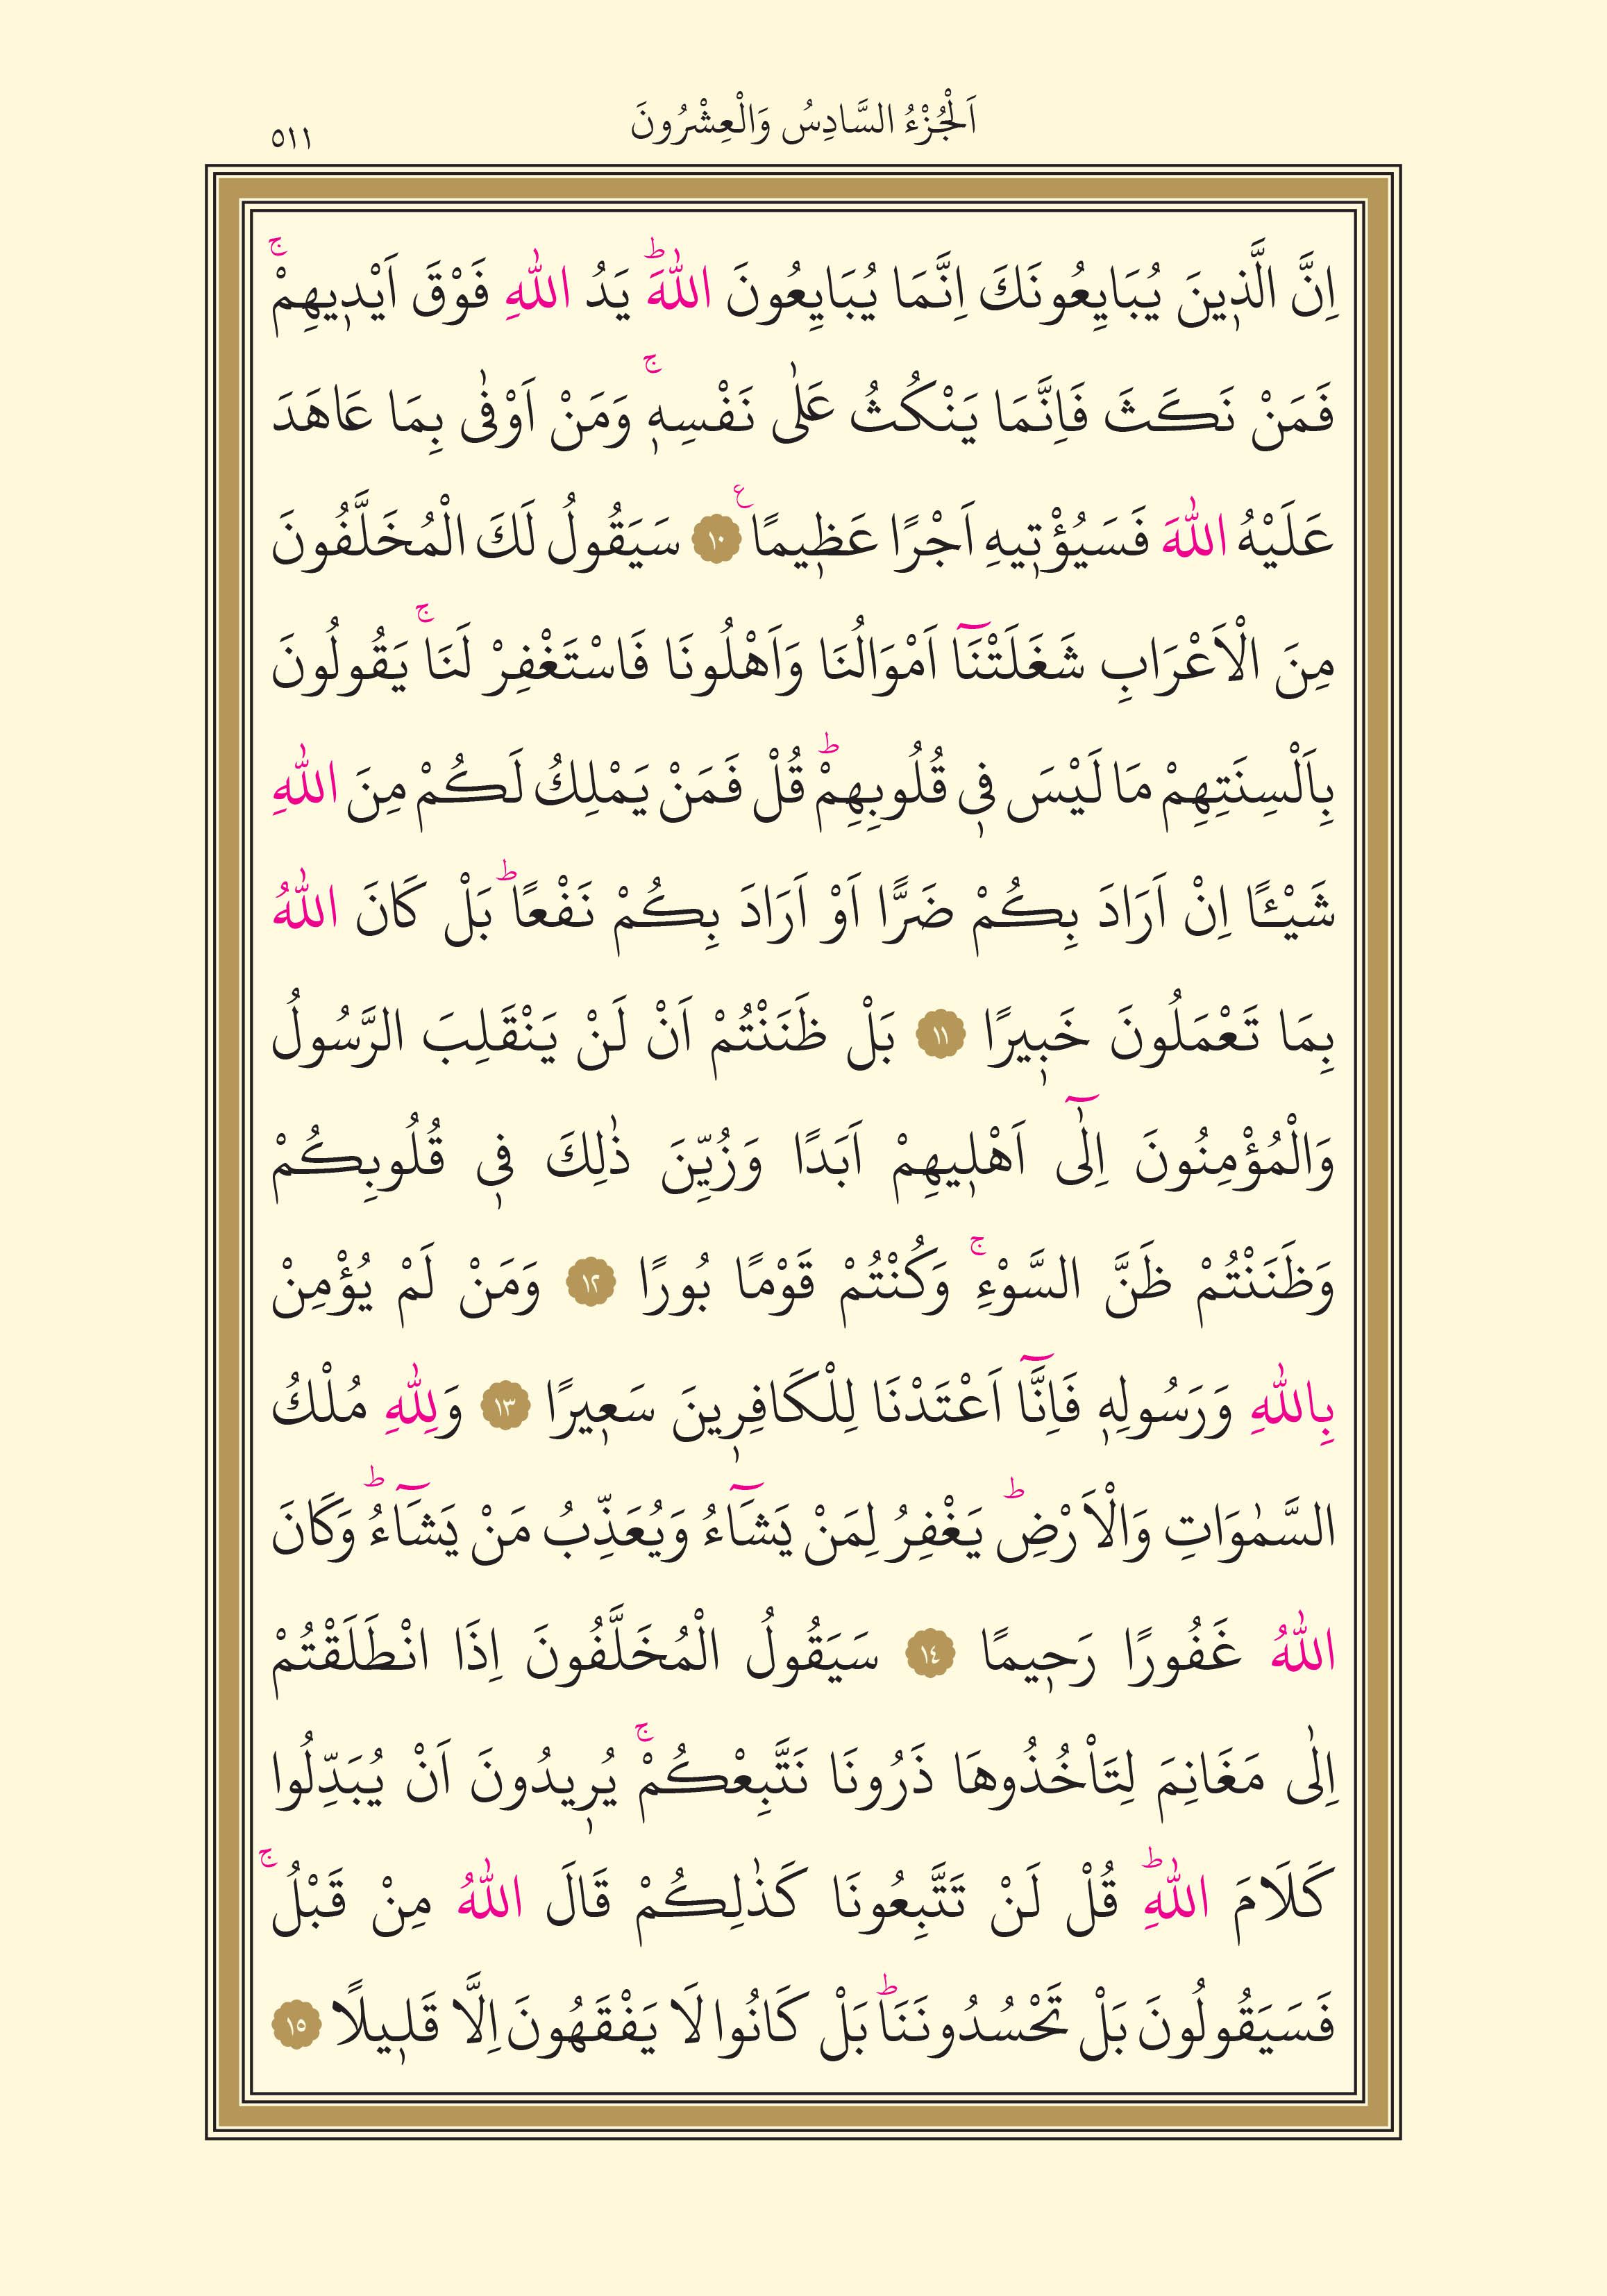 اَلْجُزْءُ السَّادِسُ وَالْعِشْرُونَ
٥١١
اِنَّ الَّذ۪ينَ يُبَايِعُونَكَ اِنَّمَا يُبَايِعُونَ اللّٰهَۜ يَدُ اللّٰهِ فَوْقَ اَيْد۪يهِمْۚ
فَمَنْ نَكَثَ فَاِنَّمَا يَنْكُثُ عَلٰى نَفْسِه۪ۚ وَمَنْ اَوْفٰى بِمَا عَاهَدَ
عَلَيْهُ اللّٰهَ فَسَيُؤْت۪يهِ اَجْرًا عَظ۪يمًا ع ١٠ سَيَقُولُ لَكَ الْمُخَلَّفُونَ
مِنَ الْاَعْرَابِ شَغَلَتْنَٓا اَمْوَالُنَا وَاَهْلُونَا فَاسْتَغْفِرْ لَنَاۚ يَقُولُونَ
بِاَلْسِنَتِهِمْ مَا لَيْسَ ف۪ي قُلُوبِهِمْۜ قُلْ فَمَنْ يَمْلِكُ لَكُمْ مِنَ اللّٰهِ
شَيْـًٔا اِنْ اَرَادَ بِكُمْ ضَرًّا اَوْ اَرَادَ بِكُمْ نَفْعًاۜ بَلْ كَانَ اللّٰهُ
بِمَا تَعْمَلُونَ خَب۪يرًا ١١ بَلْ ظَنَنْتُمْ اَنْ لَنْ يَنْقَلِبَ الرَّسُولُ
وَالْمُؤْمِنُونَ اِلٰٓى اَهْل۪يهِمْ اَبَدًا وَزُيِّنَ ذٰلِكَ ف۪ي قُلُوبِكُمْ
وَظَنَنْتُمْ ظَنَّ السَّوْءِۚ وَكُنْتُمْ قَوْمًا بُورًا ١٢ وَمَنْ لَمْ يُؤْمِنْ
بِاللّٰهِ وَرَسُولِه۪ فَاِنَّٓا اَعْتَدْنَا لِلْكَافِر۪ينَ سَع۪يرًا ١٣ وَلِلّٰهِ مُلْكُ
السَّمٰوَاتِ وَالْاَرْضِۜ يَغْفِرُ لِمَنْ يَشَٓاءُ وَيُعَذِّبُ مَنْ يَشَٓاءُۜ وَكَانَ
اللّٰهُ غَفُورًا رَح۪يمًا ١٤ سَيَقُولُ الْمُخَلَّفُونَ اِذَا انْطَلَقْتُمْ
اِلٰى مَغَانِمَ لِتَاْخُذُوهَا ذَرُونَا نَتَّبِعْكُمْۚ يُر۪يدُونَ اَنْ يُبَدِّلُوا
كَلَامَ اللّٰهِۜ قُلْ لَنْ تَتَّبِعُونَا كَذٰلِكُمْ قَالَ اللّٰهُ مِنْ قَبْلُۚ
فَسَيَقُولُونَ بَلْ تَحْسُدُونَنَاۜ بَلْ كَانُوا لَا يَفْقَهُونَ اِلَّا قَل۪يلًا ١٥